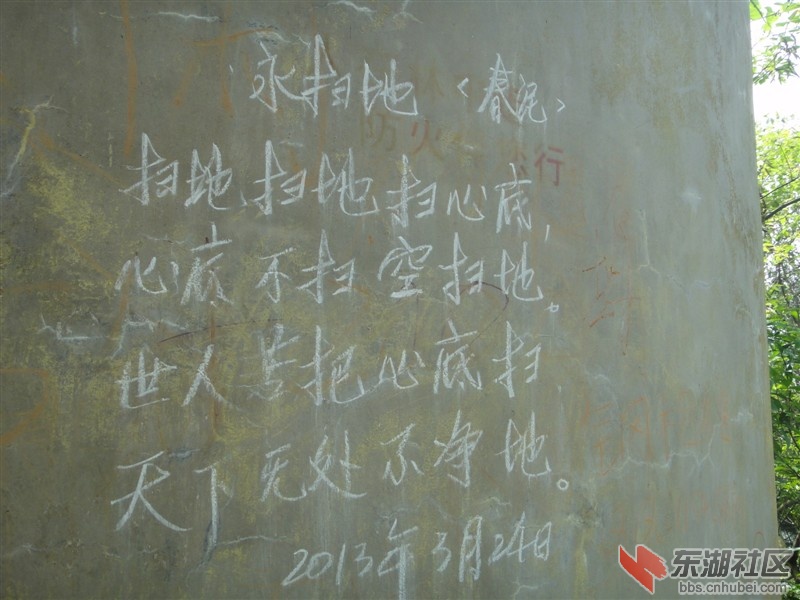 永扫地〈春泥〉
防火
行
扫地扫地扫心底,
心底不扫空扫地。
世人皆把心底扫
天下无处不净地。
2013年3月24日
东湖社区
bbs.cnhubei.com